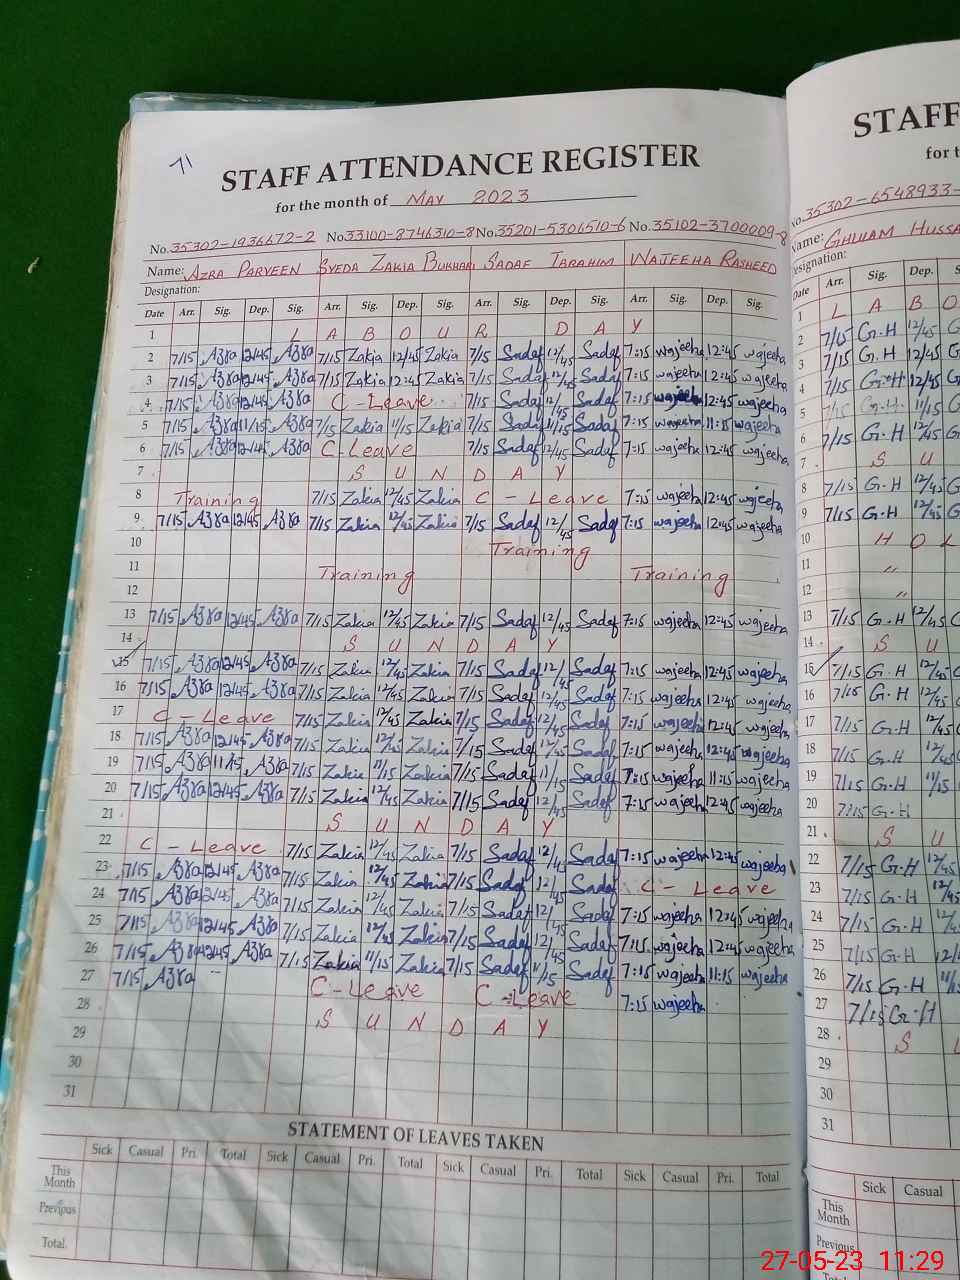 71
STAFF ATTENDANCE REGISTER
for the month of MAY 2023
No. 35302-1936672-2 No 33100-8746310-8 No. 35201-5306510-6 No. 35102-3700009-8
Name: AZRA PARVEEN SYEDA ZAKIA BUKHARI SADAF IBRAHIM WAJEEHA RASHEED
Designation:
Date Arr. Sig. Dep. Sig. Arr. Sig. Dep. Sig. Arr. Sig. Dep. Sig. Arr. Sig. Dep. Sig.
1 L A B O U R D A Y
2 7/15 Azra 12/45 Azra 7/15 Zakia 12/45 Zakia 7/15 Sadaf 12/45 Sadaf 7:15 wajeeha 12:45 wajeeha
3 7/15 Azra 12/45 Azra 7/15 Zakia 12:45 Zakia 7/15 Sadaf 12/45 Sadaf 7:15 wajeeha 12:45 wajeeha
4 7/15 Azra 12/45 Azra C-Leave 7/15 Sadaf 12/45 Sadaf 7:15 wajeeha 12:45 wajeeha
5 7/15 Azra 11/15 Azra 7/15 Zakia 11/15 Zakia 7/15 Sadaf 11/15 Sadaf 7:15 wajeeha 11:15 wajeeha
6 7/15 Azra 12/45 Azra C-Leave 7/15 Sadaf 12/45 Sadaf 7:15 wajeeha 12:45 wajeeha
7 S U N D A Y
8 Training 7/15 Zakia 12/45 Zakia C - Leave 7:15 wajeeha 12:45 wajeeha
9 7/15 Azra 12/45 Azra 7/15 Zakia 12/45 Zakia 7/15 Sadaf 12/45 Sadaf 7:15 wajeeha 12:45 wajeeha
10 Training
11 Training Training
12
13 7/15 Azra 12/45 Azra 7/15 Zakia 12/45 Zakia 7/15 Sadaf 12/45 Sadaf 7:15 wajeeha 12:45 wajeeha
14 S U N D A Y
15 7/15 Azra 12/45 Azra 7/15 Zakia 12/45 Zakia 7/15 Sadaf 12/45 Sadaf 7:15 wajeeha 12:45 wajeeha
16 7/15 Azra 12/45 Azra 7/15 Zakia 12/45 Zakia 7/15 Sadaf 12/45 Sadaf 7:15 wajeeha 12:45 wajeeha
17 C - Leave 7/15 Zakia 12/45 Zakia 7/15 Sadaf 12/45 Sadaf 7:15 wajeeha 12:45 wajeeha
18 7/15 Azra 12/45 Azra 7/15 Zakia 12/45 Zakia 7/15 Sadaf 12/45 Sadaf 7:15 wajeeha 12:45 wajeeha
19 7/15 Azra 11/15 Azra 7/15 Zakia 11/15 Zakia 7/15 Sadaf 11/15 Sadaf 7:15 wajeeha 11:15 wajeeha
20 7/15 Azra 12/45 Azra 7/15 Zakia 12/45 Zakia 7/15 Sadaf 12/45 Sadaf 7:15 wajeeha 12:45 wajeeha
21 S U N D A Y
22 C - Leave 7/15 Zakia 12/45 Zakia 7/15 Sadaf 12/45 Sadaf 7:15 wajeeha 12:45 wajeeha
23 7/15 Azra 12/45 Azra 7/15 Zakia 12/45 Zakia 7/15 Sadaf 12/45 Sadaf C - Leave
24 7/15 Azra 12/45 Azra 7/15 Zakia 12/45 Zakia 7/15 Sadaf 12/45 Sadaf 7:15 wajeeha 12:45 wajeeha
25 7/15 Azra 12/45 Azra 7/15 Zakia 12/45 Zakia 7/15 Sadaf 12/45 Sadaf 7:15 wajeeha 12:45 wajeeha
26 7/15 Azra 12/45 Azra 7/15 Zakia 11/15 Zakia 7/15 Sadaf 11/15 Sadaf 7:15 wajeeha 11:15 wajeeha
27 7/15 Azra C-Leave C-Leave 7:15 wajeeha
28 S U N D A Y
29
30
31
STATEMENT OF LEAVES TAKEN
Sick Casual Pri. Total Sick Casual Pri. Total Sick Casual Pri. Total Sick Casual Pri. Total
This Month
Previous
Total.
STAFF
for t
No. 35302-6548933-
Name: GHULAM HUSSA
Designation:
Date Arr. Sig. Dep.
1 L A B O
2 7/15 G.H 12/45
3 7/15 G.H 12/45
4 7/15 G.H 12/45
5 7/15 G.H 11/15
6 7/15 G.H 12/45
7 S U
8 7/15 G.H 12/45
9 7/15 G.H 12/45
10 H O L
11 "
12 "
13 7/15 G.H 12/45
14 S U
15 7/15 G.H 12/45
16 7/15 G.H 12/45
17 7/15 G.H 12/45
18 7/15 G.H 12/45
19 7/15 G.H 11/15
20 7/15 G.H
21 S U
22 7/15 G.H 12/45
23 7/15 G.H 12/45
24 7/15 G.H 12/4
25 7/15 G.H 12/
26 7/15 G.H 11/
27 7/15 G.H
28 S U
29
30
31
Sick Casual
This Month
Previous
Total
27-05-23 11:29